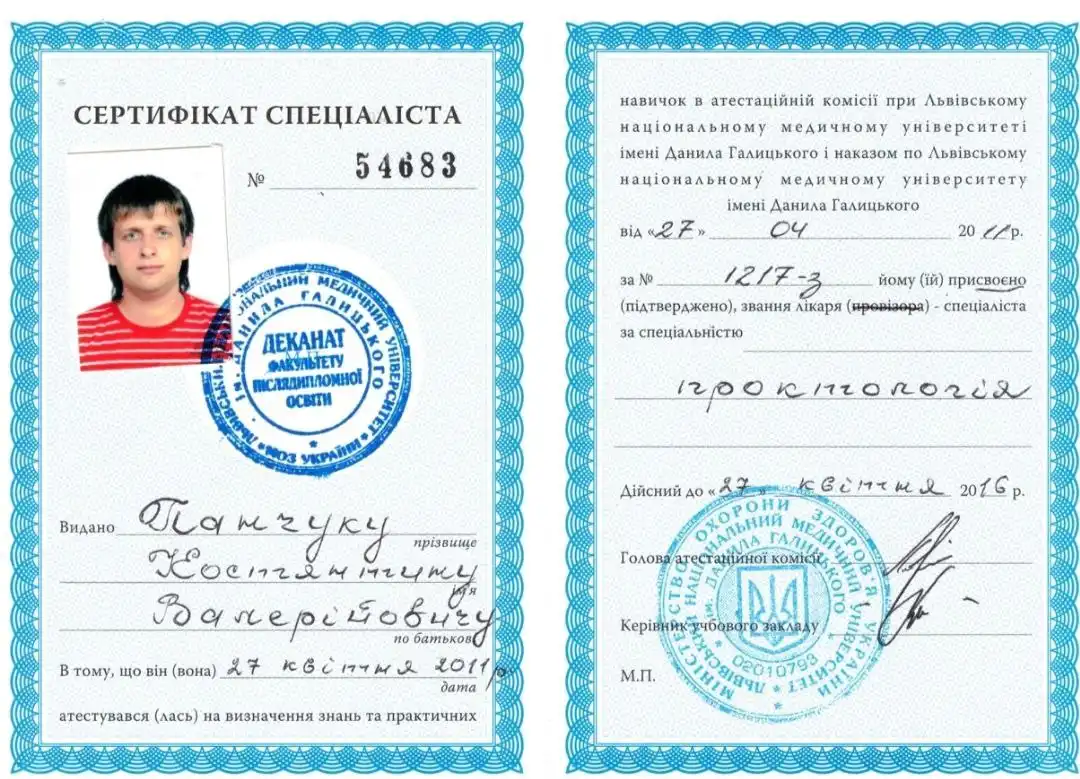 СЕРТИФІКАТ СПЕЦІАЛІСТА
№ 54683
ЛЬВІВСЬКИЙ НАЦІОНАЛЬНИЙ МЕДИЧНИЙ УНІВЕРСИТЕТ * МОЗ УКРАЇНИ *
ІМ. ДАНИЛА ГАЛИЦЬКОГО
ДЕКАНАТ
ФАКУЛЬТЕТУ
ПІСЛЯДИПЛОМНОЇ
ОСВІТИ
Видано Панчуку
прізвище
Костянтину
ім'я
Валерійовичу
по батькові
В тому, що він (вона) 27 квітня 2011 р
дата
атестувався (лась) на визначення знань та практичних
навичок в атестаційній комісії при Львівському
національному медичному університеті
імені Данила Галицького і наказом по Львівському
національному медичному університету
імені Данила Галицького
від «27» 04 2011 р.
за № 1217-з йому (їй) присвоєно
(підтверджено), звання лікаря (провізора) - спеціаліста
за спеціальністю
проктологія
Дійсний до «27» квітня 2016 р.
Голова атестаційної комісії
Керівник учбового закладу
М.П.
МІНІСТЕРСТВО ОХОРОНИ ЗДОРОВ'Я УКРАЇНИ
ЛЬВІВСЬКИЙ НАЦІОНАЛЬНИЙ МЕДИЧНИЙ УНІВЕРСИТЕТ
ІМ. ДАНИЛА ГАЛИЦЬКОГО
02010793